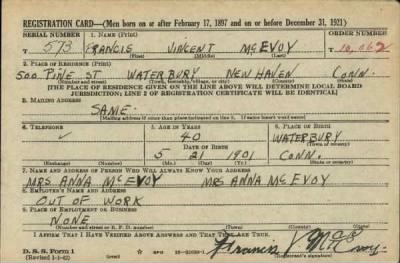 REGISTRATION CARD—(Men born on or after February 17, 1897 and on or before December 31, 1921)
SERIAL NUMBER 1. NAME (Print) ORDER NUMBER
T 573 FRANCIS VINCENT MCEVOY T 10,062
(First) (Middle) (Last)
2. PLACE OF RESIDENCE (Print)
500 PINE ST WATERBURY NEW HAVEN CONN.
(Number and street) (Town, township, village, or city) (County) (State)
[THE PLACE OF RESIDENCE GIVEN ON THE LINE ABOVE WILL DETERMINE LOCAL BOARD
JURISDICTION; LINE 2 OF REGISTRATION CERTIFICATE WILL BE IDENTICAL]
3. MAILING ADDRESS
SAME.
[Mailing address if other than place indicated on line 2. If same insert word same]
4. TELEPHONE 5. AGE IN YEARS 6. PLACE OF BIRTH
✓ 40 WATERBURY
DATE OF BIRTH (Town or county)
5 21 1901 CONN.
(Exchange) (Number) (Mo.) (Day) (Yr.) (State or country)
7. NAME AND ADDRESS OF PERSON WHO WILL ALWAYS KNOW YOUR ADDRESS
MRS. ANNA MCEVOY MRS ANNA MCEVOY
8. EMPLOYER'S NAME AND ADDRESS
OUT OF WORK
9. PLACE OF EMPLOYMENT OR BUSINESS
NONE
(Number and street or R. F. D. number) (Town) (County) (State)
I AFFIRM THAT I HAVE VERIFIED ABOVE ANSWERS AND THAT THEY ARE TRUE.
D. S. S. Form 1
(Revised 1-1-42) (over)
Francis V. McEvoy.